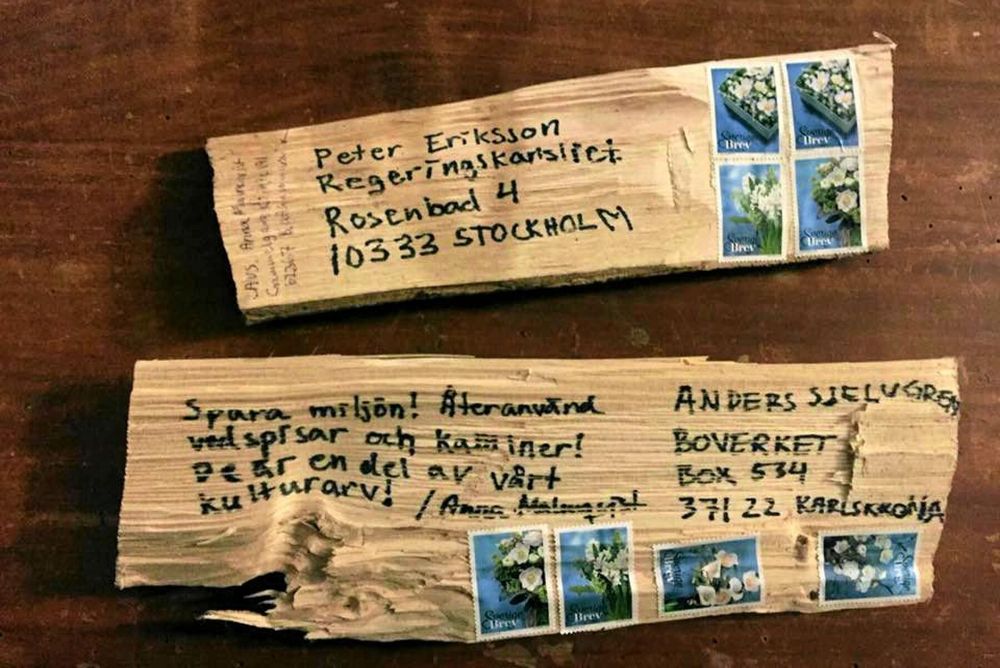 Peter Eriksson
Regeringskansliet
Rosenbad 4
10333 STOCKHOLM
Sverige
Brev
Sverige
Brev
Sverige
Brev
Sverige
Brev
Avs. Anna
Spara miljön! Återanvänd
vedspisar och kaminer!
De är en del av vårt
kulturarv! /Anna Malmqvist
ANDERS SJELVGREN
BOVERKET
BOX 534
371 22 KARLSKRONA
Sverige
Brev
Sverige
Brev
Sverige
Brev
Sverige
Brev